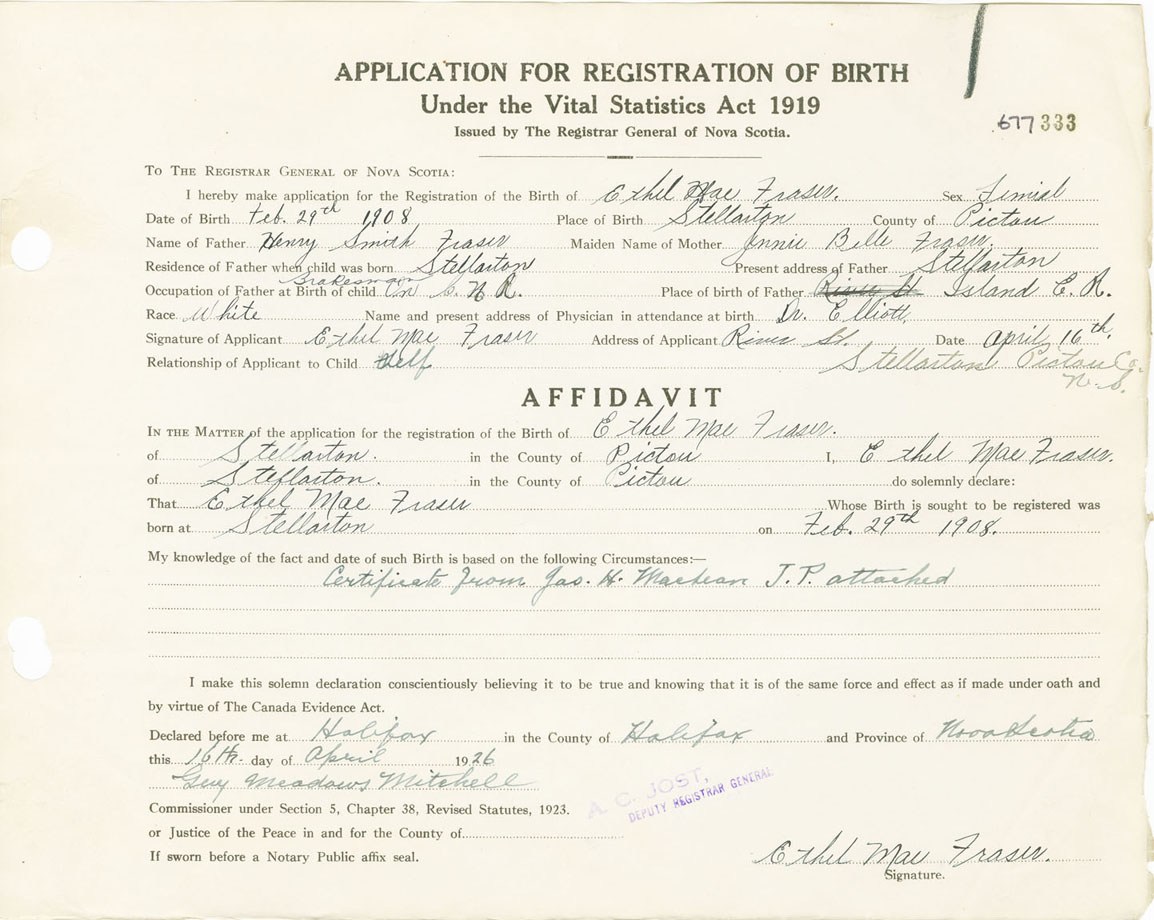 APPLICATION FOR REGISTRATION OF BIRTH
Under the Vital Statistics Act 1919
Issued by The Registrar General of Nova Scotia.
677333
TO THE REGISTRAR GENERAL OF NOVA SCOTIA:
I hereby make application for the Registration of the Birth of Ethel Mae Fraser. Sex Fimial
Date of Birth Feb. 29th 1908 Place of Birth Stellarton County of Pictou
Name of Father Henry Smith Fraser Maiden Name of Mother Jennie Belle Fraser.
Residence of Father when child was born Stellarton Present address of Father Stellarton
Brakesman
Occupation of Father at Birth of child On C. N. R. Place of birth of Father River St Island E. R.
Race White Name and present address of Physician in attendance at birth Dr. Elliott
Signature of Applicant Ethel Mae Fraser Address of Applicant River St. Date April 16th.
Relationship of Applicant to Child Self Stellarton Pictou Co.
N. S.
AFFIDAVIT
IN THE MATTER of the application for the registration of the Birth of Ethel Mae Fraser.
of Stellarton. in the County of Pictou I, Ethel Mae Fraser.
of Stellarton. in the County of Pictou do solemnly declare:
That Ethel Mae Fraser Whose Birth is sought to be registered was
born at Stellarton on Feb. 29th 1908.
My knowledge of the fact and date of such Birth is based on the following Circumstances:—
Certificate from Jas. H. MacLean J. P. attached
I make this solemn declaration conscientiously believing it to be true and knowing that it is of the same force and effect as if made under oath and
by virtue of The Canada Evidence Act.
Declared before me at Halifax in the County of Halifax and Province of Nova Scotia
this 16th. day of April 1926
Guy Meadows Mitchell
A. C. JOST,
DEPUTY REGISTRAR GENERAL
Commissioner under Section 5, Chapter 38, Revised Statutes, 1923.
or Justice of the Peace in and for the County of
If sworn before a Notary Public affix seal.
Ethel Mae Fraser.
Signature.